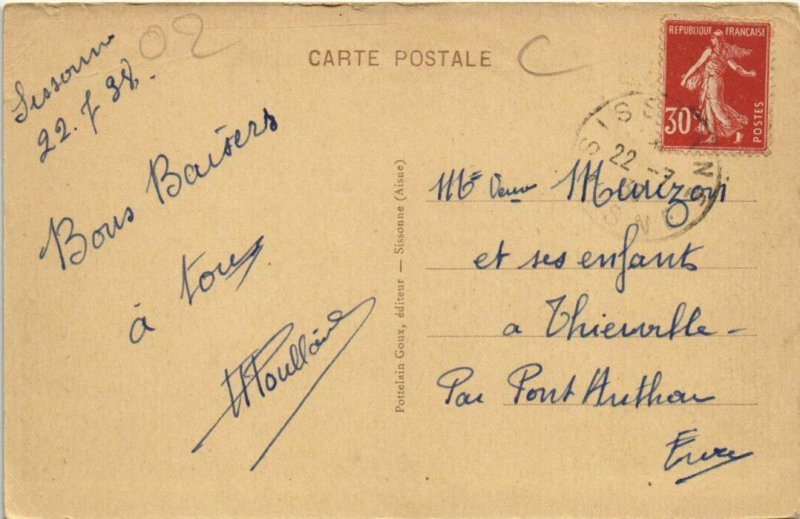 Sissonne
22.7 38.
02
C
CARTE POSTALE
Bons Baisers
à tous
Pottelain Goux, éditeur — Sissonne (Aisne)
REPUBLIQUE FRANÇAISE
30
POSTES
SISSONNE
22 -7
Mme Veuve
et ses enfants
a Thierville -
Par Pont Authou
Eure